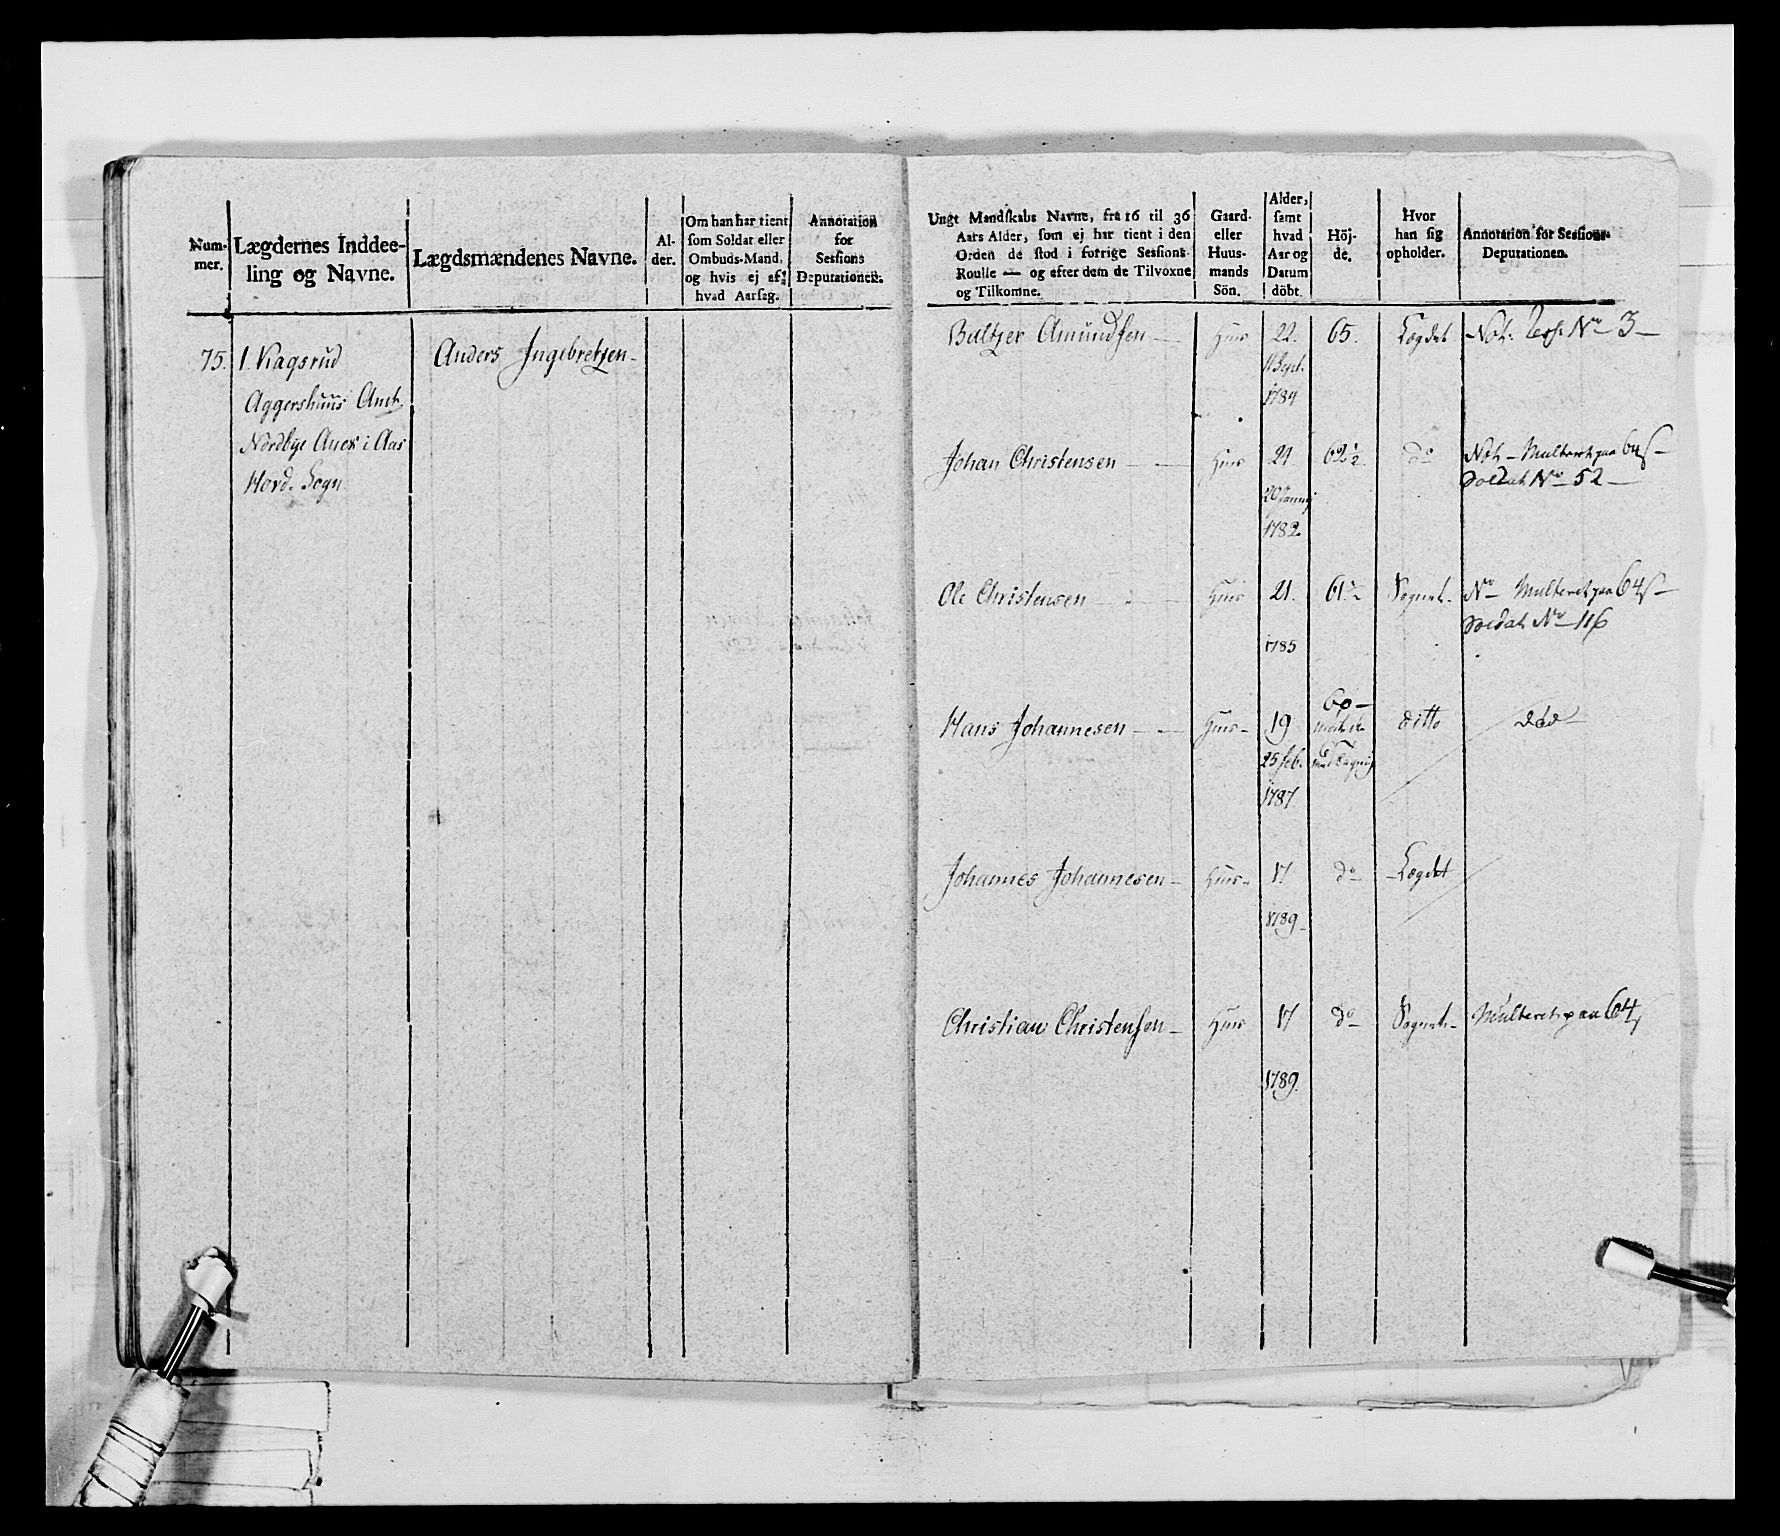 Num-
mer.
Lægdernes Inddee-
ling og Navne.
Lægdsmændenes Navne.
Al-
der.
Om han har tient
som Soldat eller
Ombuds-Mand,
og hvis ej af
hvad Aarsag.
Annotation
for
Sessions
Deputationen.
75.
Aggershuus Amt.
Nordbye Anex i Aas
Hovd. Sogn
Anders Ingebretsen
Ungt Mandskabs Navne, fra 16 til 36
Aars Alder, som ej har tient i den
Orden de stod i forrige Sessions
Roulle — og efter dem de Tilvoxne
og Tilkomne.
Gaard-
eller
Huus-
mands
Sön.
Alder,
samt
hvad
Aar og
Datum
döbt.
Höj-
de.
Hvor
han sig
opholder.
Annotation for Sessions-
Deputationen.
Baltzer Amundsen — Huus 22. 65. Lægdet No 3 —
11 Sept.
1784
Johan Christensen — Huus 24 62½ do Multeret paa 64 s —
Soldat No 52 —
20 Januarj
1782
Ole Christensen — Huus 21. Sognet. Multeret paa 64 s —
Soldat No 116
1785
60 —
Hans Johannesen — Huus 19 ditto död
25 feb.
1787
Johannes Johannesen — Huus 17 do Lægdet
1789
Christian Christensen — Huus 17 do Sognet Multeret paa 64 s
1789.